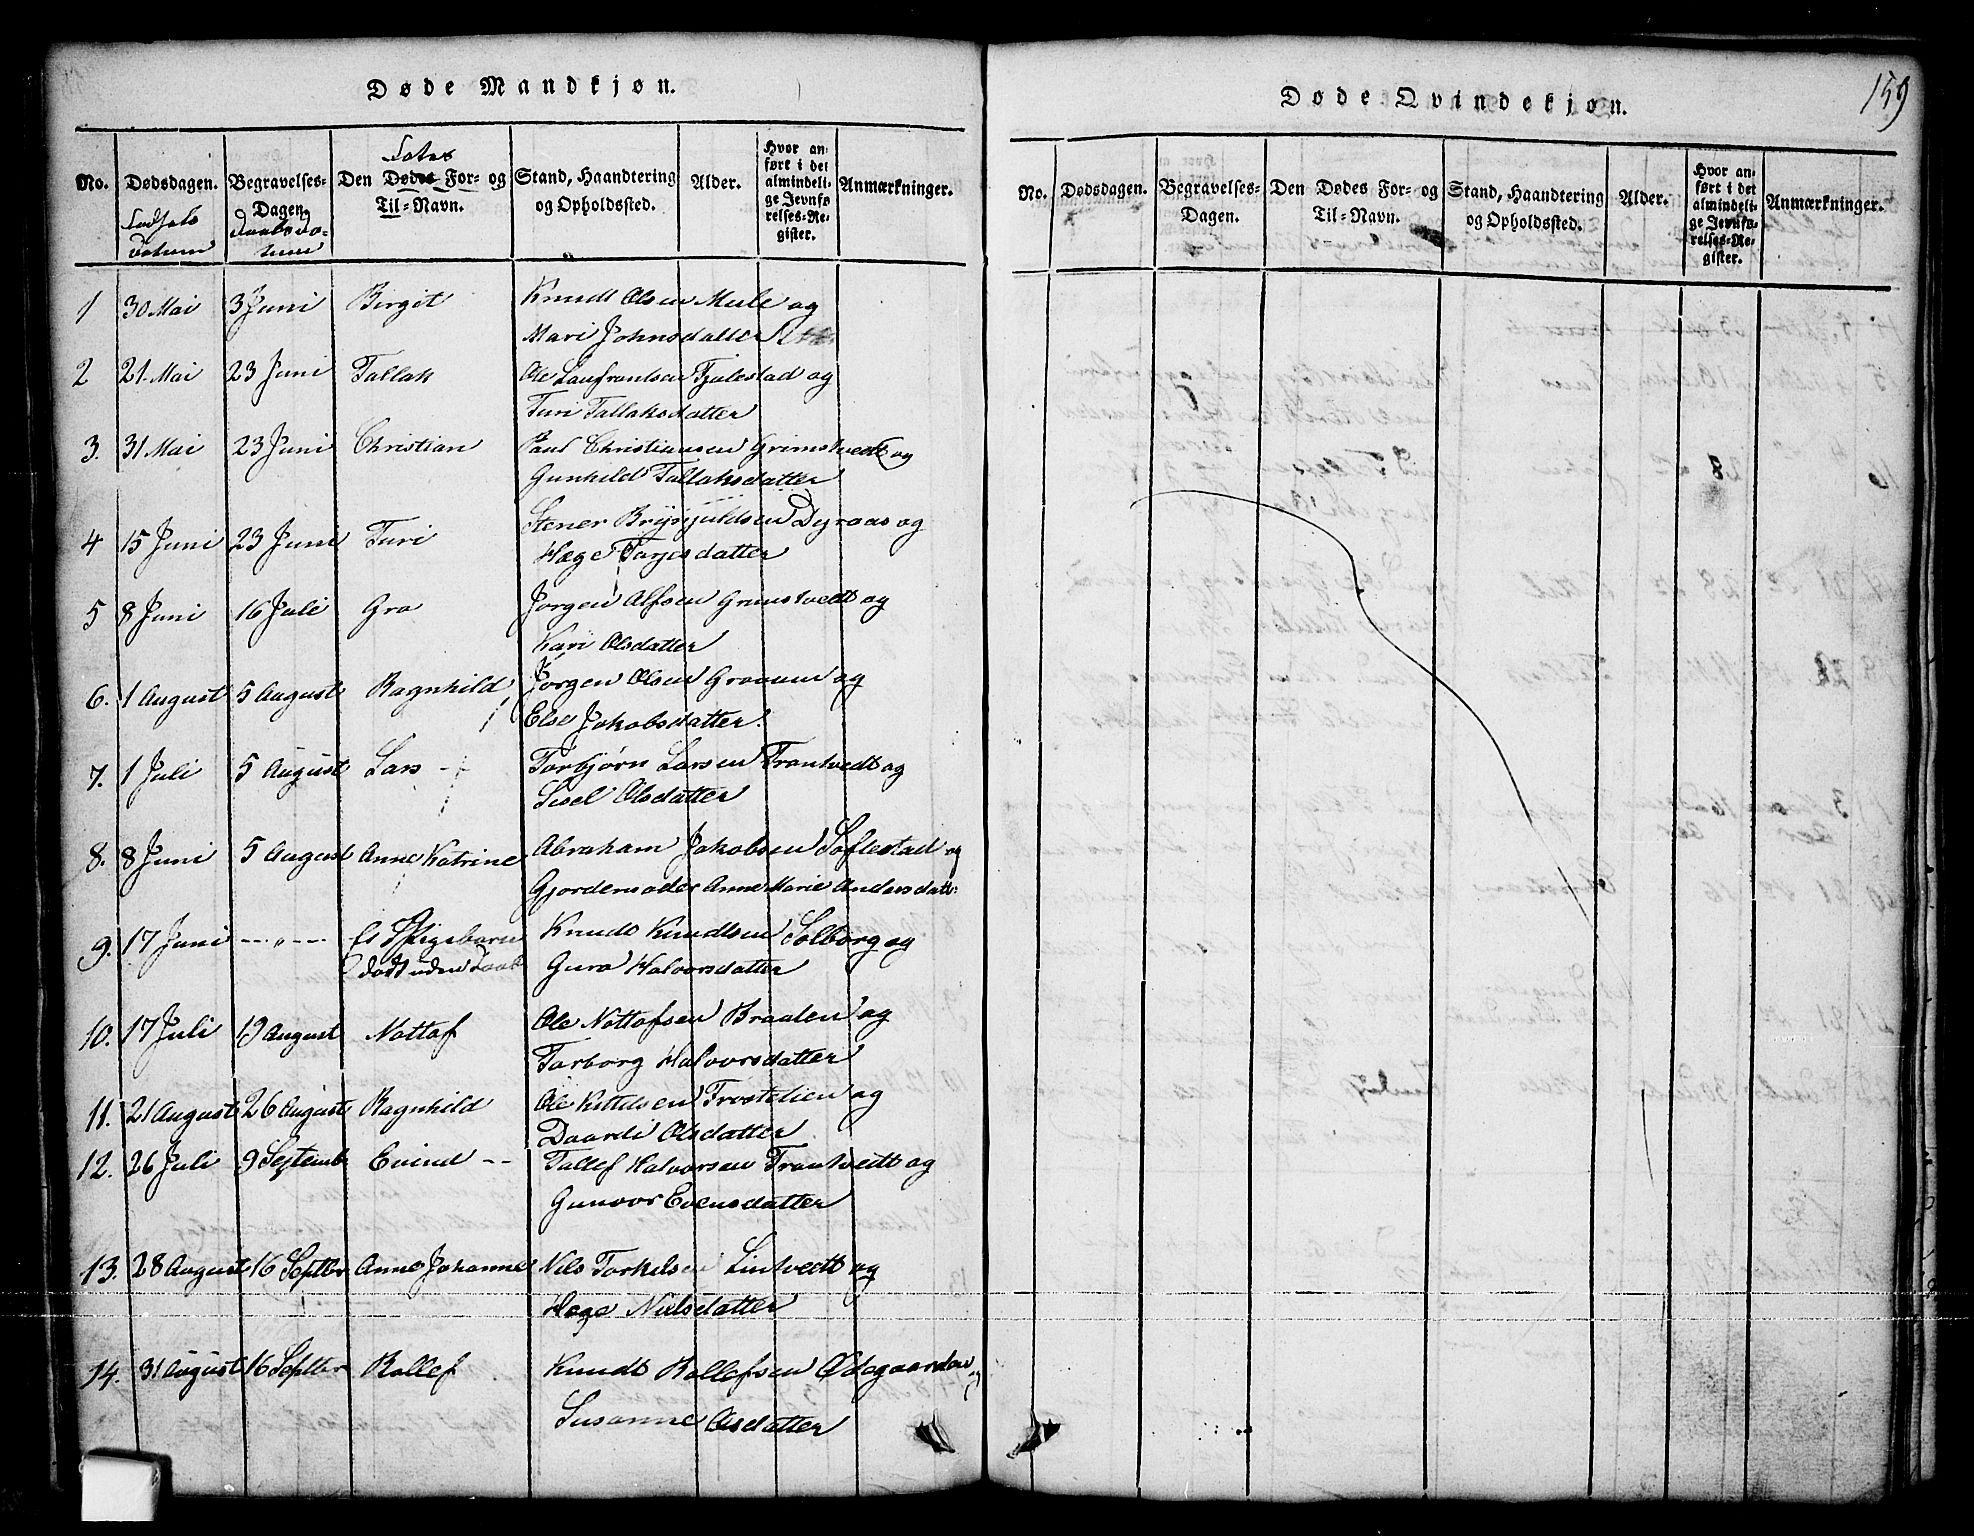 Døde Mandkjøn.
No.
Dødsdagen.
Fødsels
Datum
Begravelses-
Dagen
Daabsda-
tum
Den Døbes For- og
Til-Navn.
Stand, Haandtering
og Opholdssted.
Alder.
Hvor an-
ført i det
almindeli-
ge Jevnfø-
relses-Re-
gister.
Anmærkninger.
1 30 Mai 3 Juni Birgit Knudt Olsen Meile og
Mari Johnsdatter
2 21 Mai 23 Juni Tallak Ole Laufrantsen Tjulestad og
Turi Tallaksdatter
3. 31 Mai 23 Juni Christian Paul Christiansen Grimstvedt og
Gunhild Tallaksdatter
4 15 Juni 23 Juni Turi Stener Brynjuldsen Dyraas og
Hæge Tarjesdatter
5 8 Juni 16 Juli Gro Jørgen Alfsen Grimstvedt og
Kari Olsdatter
6. 1 August 5 August Ragnhild Jørgen Olsen Graaum og
Else Jakobsdatter.
7. 1 Juli 5 August Lars Torbjørn Larsen Trantvedt og
Sisel Olsdatter
8. 8 Juni 5 August Anne Katrine Abraham Jakobsen Toflestad og
Gjordemoder Anne Marie Andersdatt:
9. 17 Juni --- " --- Et Pigebarn Knudt Knudtsen Solborg og
død uden Daab Guro Halvorsdatter
10. 17 Juli 19 August Nottof Ole Nottofsen Braaten og
Torborg Halvorsdatter
11. 21 August 26 August Ragnhild Ole Kittelsen Trostelien og
Daardi Olsdatter
12. 26 Juli 9 Septemb Evind -- Tallef Halvorsen Trantvedt og
Gunvor Evensdatter
13. 28 August 16 Septter Anne Johanne Nils Torkelsen Lintvedt og
Hæge Nielsdatter
14. 31 August 16 Septter Rollef Knudt Rollefsen Ødegaarden og
Susanne Olsdatter
159
Døde Qvindekjøn.
No.
Dødsdagen.
Begravelses-
Dagen.
Den Dødes For- og
Til-Navn.
Stand, Haandtering
og Opholdssted.
Alder.
Hvor an-
ført i det
almindeli-
ge Jevnfø-
relses-Re-
gister.
Anmærkninger.